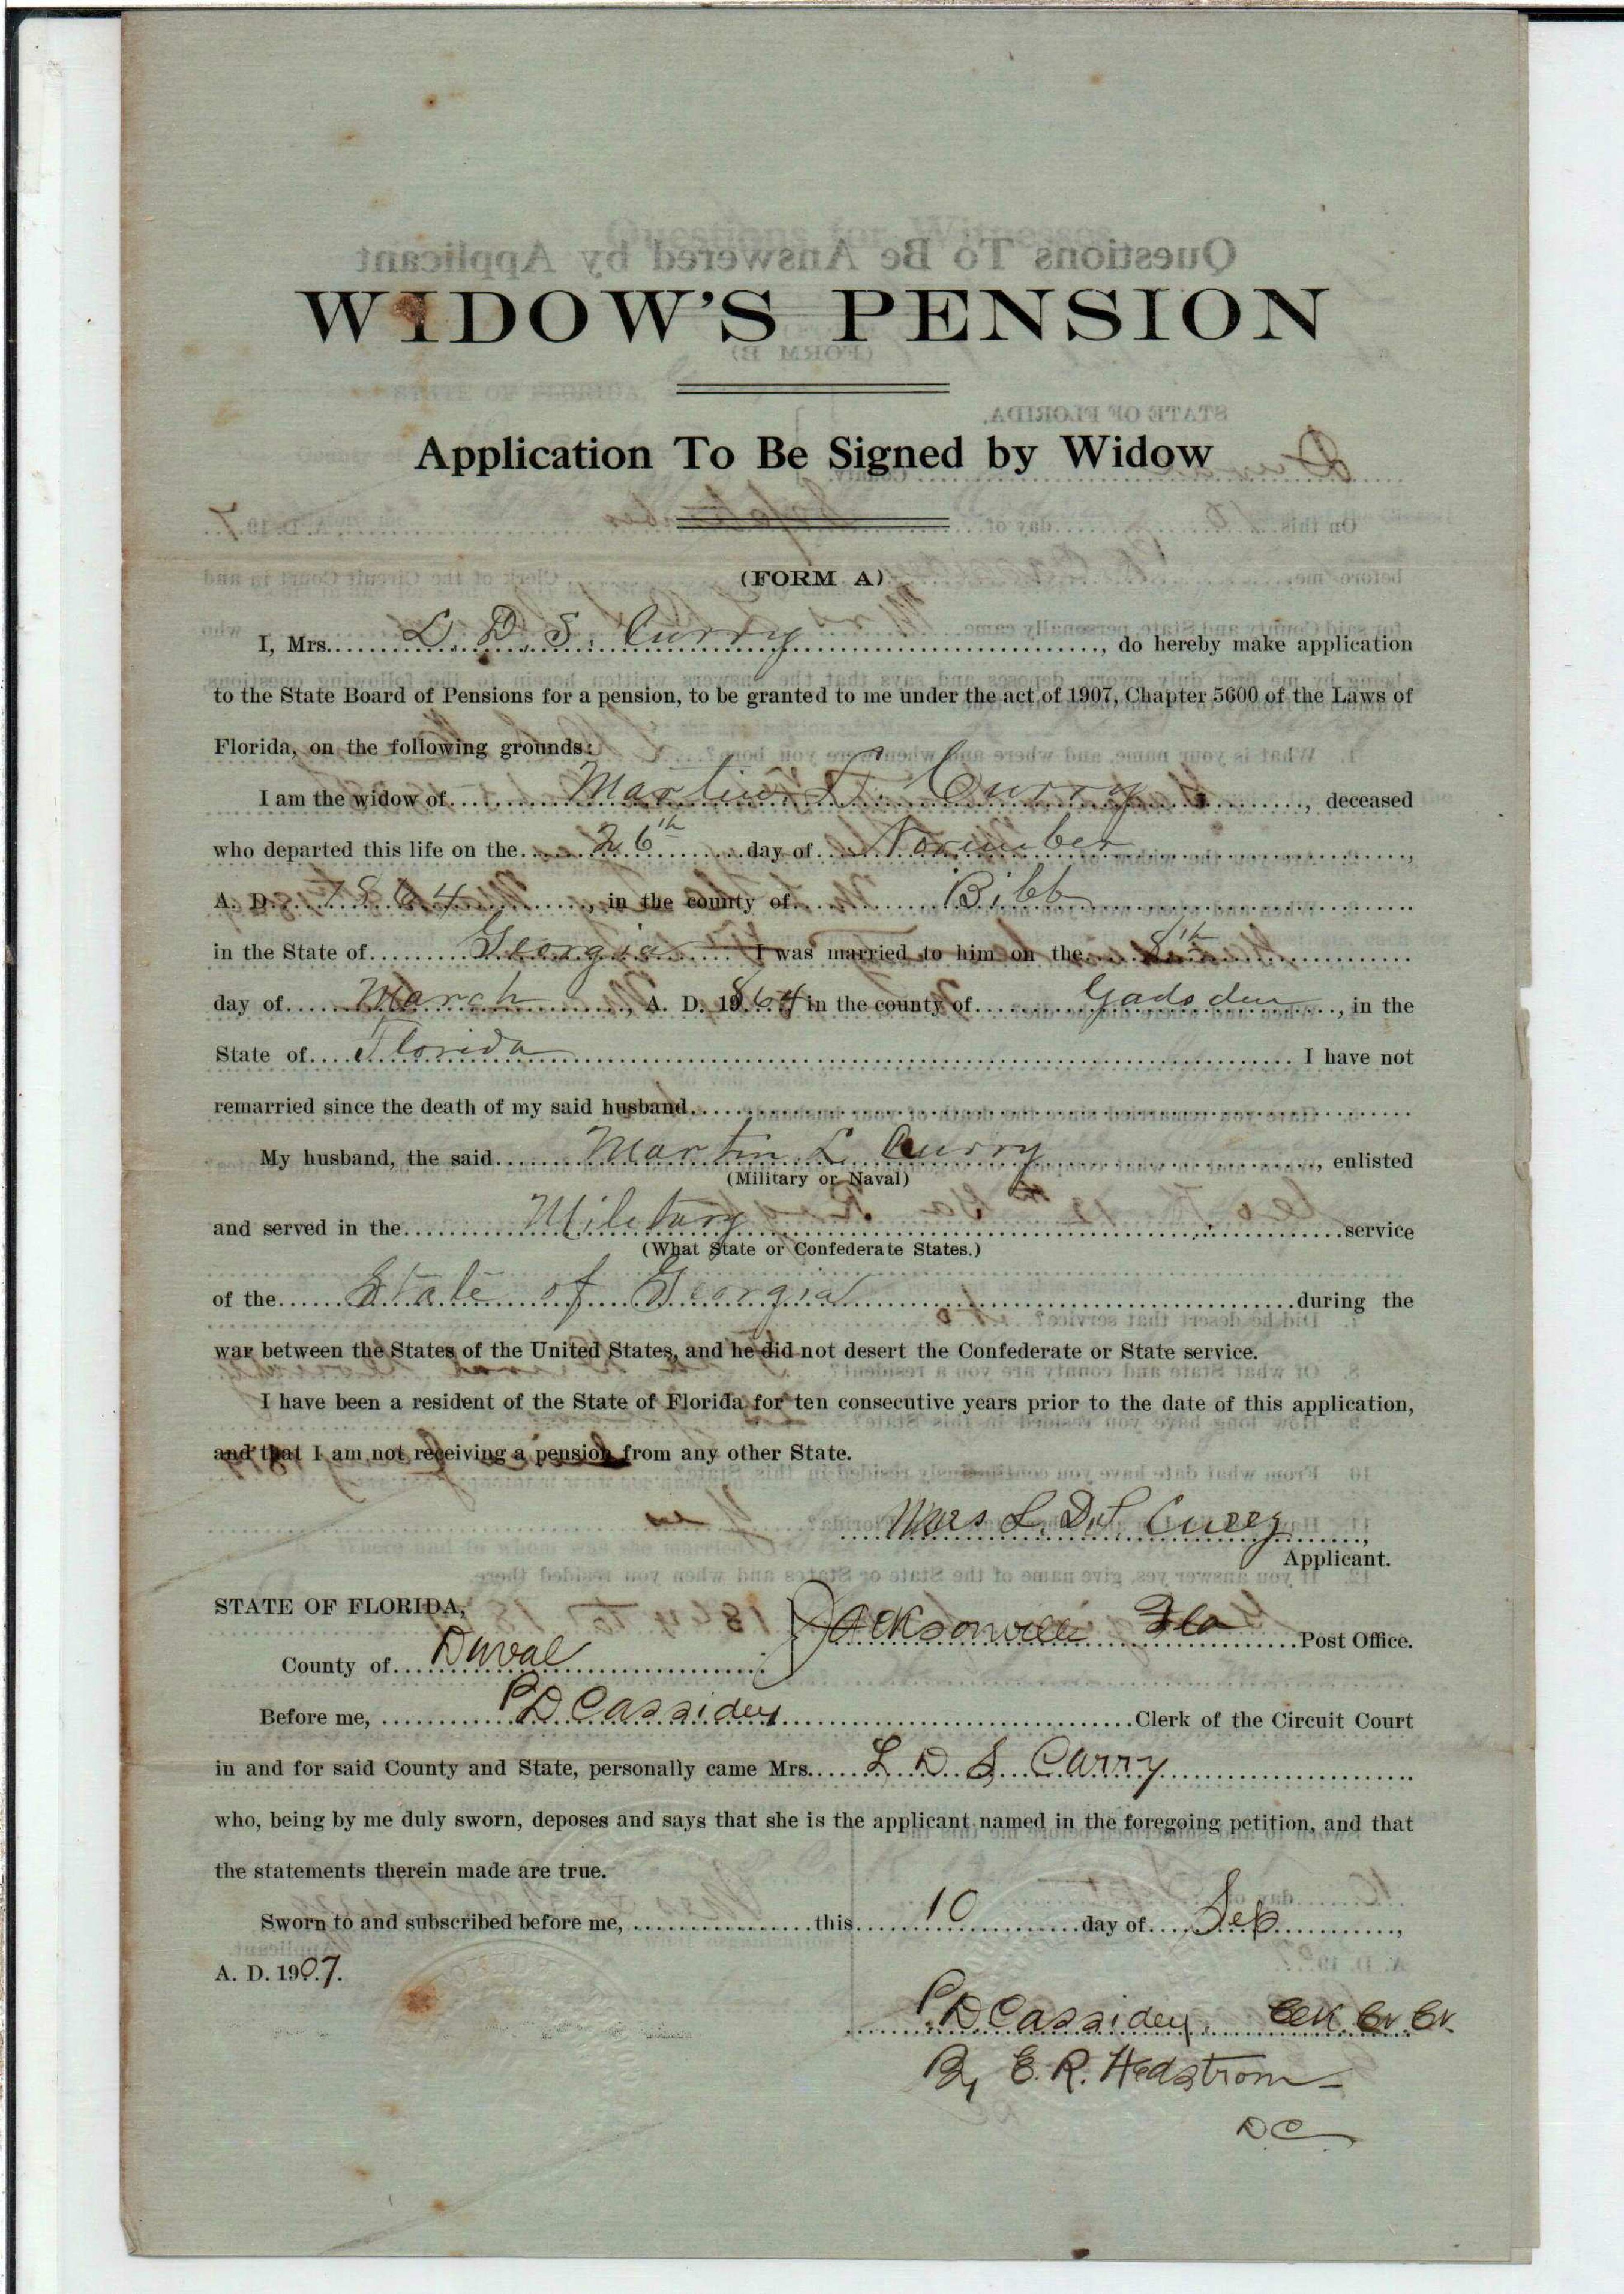 WIDOW'S PENSION
Application To Be Signed by Widow
(FORM A)
I, Mrs. L. D. S. Curry, do hereby make application
to the State Board of Pensions for a pension, to be granted to me under the act of 1907, Chapter 5600 of the Laws of
Florida, on the following grounds:
I am the widow of Martin L. Curry, deceased
who departed this life on the 26th day of November,
A. D. 1864, in the county of Bibb
in the State of Georgia I was married to him on the 8th
day of March, A. D. 1864 in the county of Gadsden, in the
State of Florida I have not
remarried since the death of my said husband
My husband, the said Martin L. Curry, enlisted
(Military or Naval)
and served in the Military service
(What State or Confederate States.)
of the State of Georgia during the
war between the States of the United States, and he did not desert the Confederate or State service.
I have been a resident of the State of Florida for ten consecutive years prior to the date of this application,
and that I am not receiving a pension from any other State.
Mrs L. D. S. Curry,
Applicant.
STATE OF FLORIDA,
Jacksonville Fla Post Office.
County of Duval
Before me, P D Cassidey Clerk of the Circuit Court
in and for said County and State, personally came Mrs. L D S Curry
who, being by me duly sworn, deposes and says that she is the applicant named in the foregoing petition, and that
the statements therein made are true.
Sworn to and subscribed before me, this 10 day of Sep,
A. D. 1907.
P D Cassidey Clk Cr Ct
By E. R. Hedstrom
D C